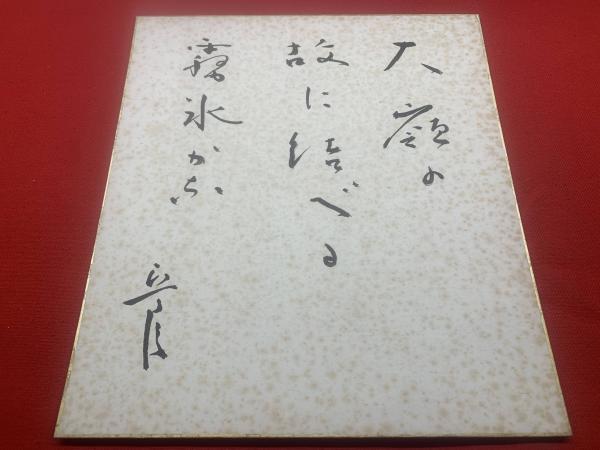 大の
故に結べる
霧氷かな